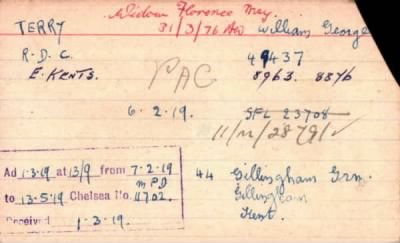 Widow Florence May
TERRY 31/3/76 William George
R.D.C. 49437
E. KENTS. 8963. 8876
PAC
6.2.19. SFL 23708
11/M/28791 ✓
Ad 1.3.19 at 13/9 from 7.2.19
MPD
to 13.5.19 Chelsea No. 11702.
Received 1.3.19.
44 Gillingham Grn.
Gillingham
Kent.